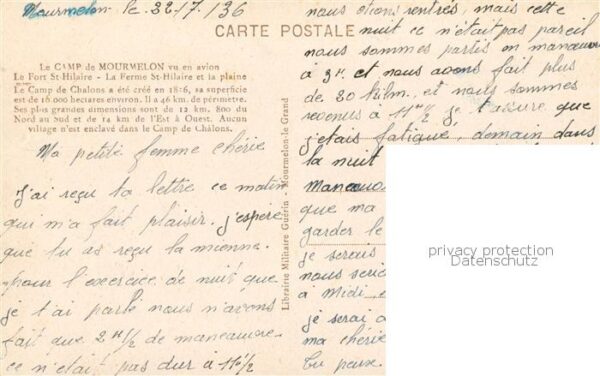 Mourmelon le 22/7/36
CARTE POSTALE
Le CAMP de MOURMELON vu en avion
Le Fort St-Hilaire - La Ferme St-Hilaire et la plaine
Le Camp de Chalons a été créé en 1856, sa superficie
est de 16 000 hectares environ. Il a 46 km. de périmètre.
Ses plus grandes dimensions sont de 12 km. 800 du
Nord au Sud et de 14 km. de l'Est à Ouest. Aucun
village n'est enclavé dans le Camp de Châlons.
Ma petite femme chérie
J'ai reçu ta lettre ce matin
qui m'a fait plaisir. j'espère
que tu as reçu la mienne.
pour l'exercice de nuit que
je t'ai parlé nous n'avons
fait que 2 H 1/2 de manœuvre.
ce n'était pas dur à 11 h 1/2
Librairie Militaire Guérin - Mourmelon-le-Grand
nous étions rentrés, mais cette
nuit ce n'était pas pareil
nous sommes partis en manœuvre
à 3 H. et nous avons fait plus
de 30 kilm. et nous sommes
revenus à 11 H 1/2 je t'assure que
j'étais fatigué, demain dans
la nuit
que ma
garder le
je serais
nous
à Midi
je serai
ma chérie
tu peux
privacy protection
Datenschutz